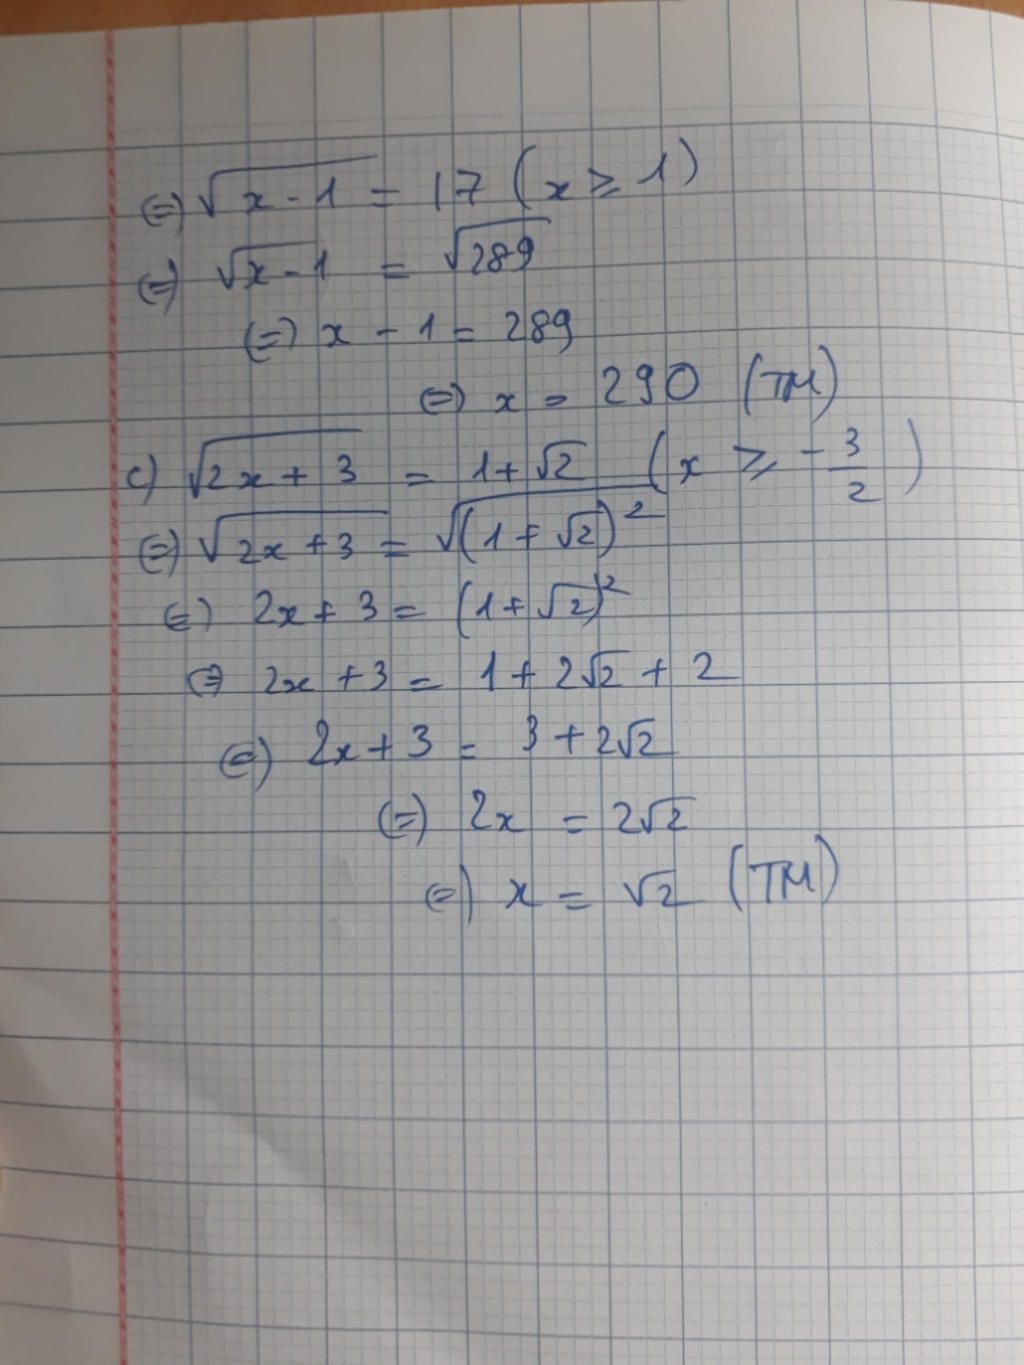 ⇔) √(x - 1) = 17 (x ≥ 1)
⇔) √(x - 1) = √289
⇔) x - 1 = 289
⇔) x = 290 (TM)
c) √(2x + 3) = 1 + √2 (x ≥ - 3/2)
⇔) √(2x + 3) = √((1 + √2)²)
⇔) 2x + 3 = (1 + √2)²
⇔) 2x + 3 = 1 + 2√2 + 2
⇔) 2x + 3 = 3 + 2√2
⇔) 2x = 2√2
⇔) x = √2 (TM)